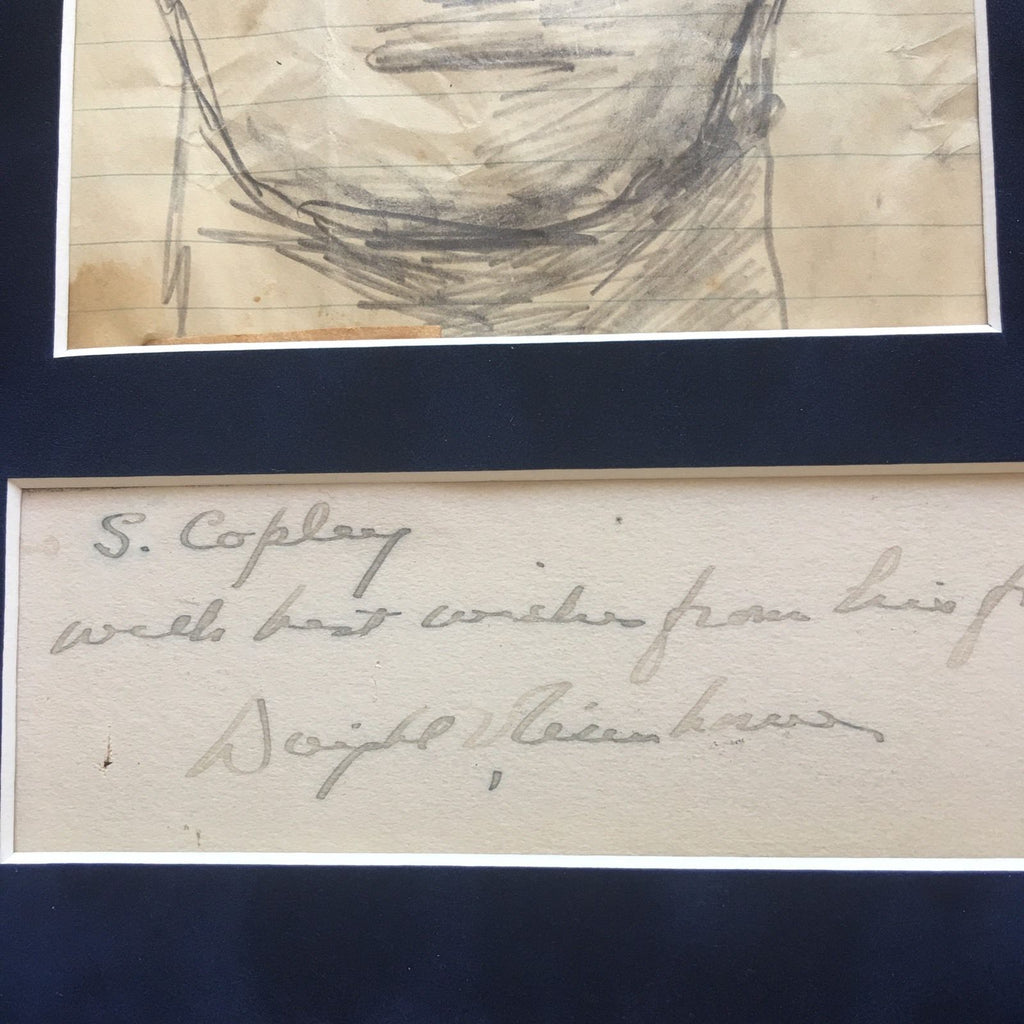 S. Copley
with best wishes from his fr
Dwight Eisenhower